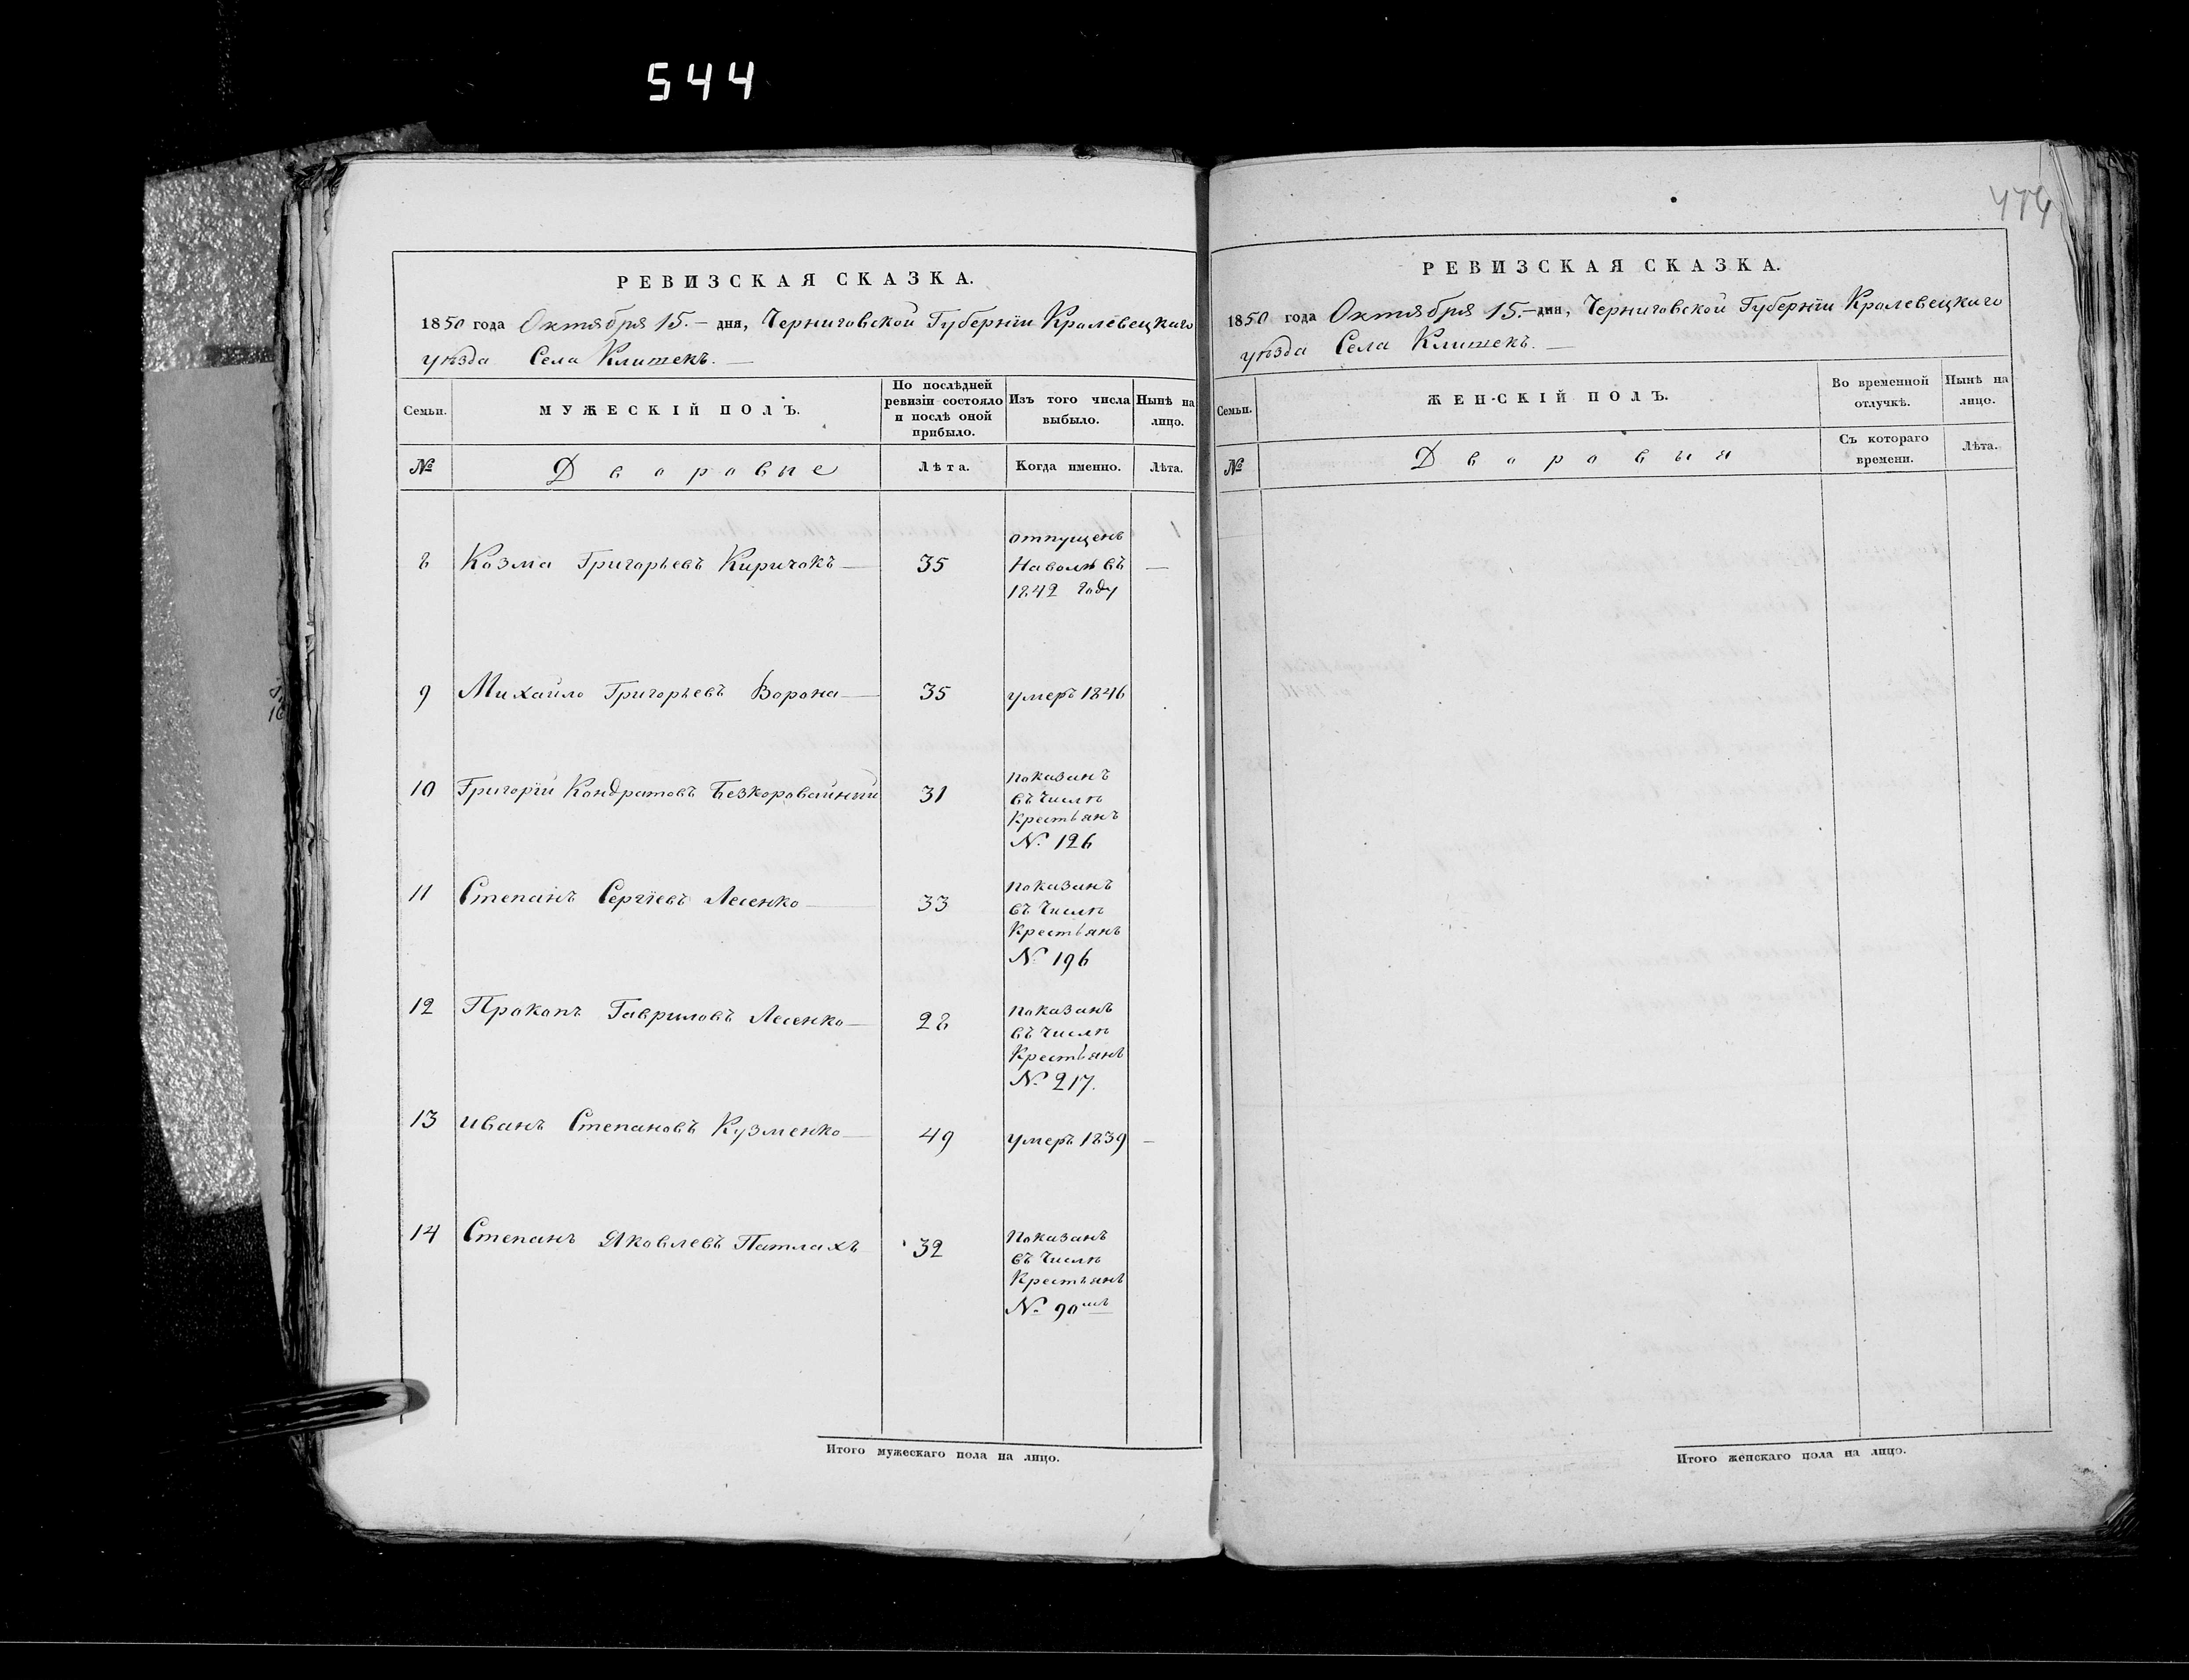 544
474
РЕВИЗСКАЯ СКАЗКА.
1850 года Октября 15.– дня, Черниговской Губернїи Кролевецкаго
уѣзда Села Клишекъ. —
Семьи. МУЖЕСКІЙ ПОЛЪ. По послѣдней ревизіи состояло и послѣ оной прибыло. Изъ того числа выбыло. Нынѣ на лицо.
№ Дворовые Лѣта. Когда именно. Лѣта.
8 Козма Григорьевъ Киричокъ — 35 отпущенъ
Наволю въ —
1842 году
9 Михайло Григорьевъ Ворона — 35 умеръ 1846
10 Григорїй Кондратовъ Безкоровайный 31 показанъ
въ числѣ
Крестьянъ
№ 126
11 Степанъ Сергїевъ Лесенко — 33 показанъ
въ числѣ
Крестьянъ
№ 196
12 Прокопъ Гавриловъ Лесенко — 28 показанъ
въ числѣ
Крестьянъ
№ 217.
13 Иванъ Степановъ Кузменко — 49 умеръ 1839 —
14 Степанъ Яковлевъ Патлахъ 32 показанъ
въ числѣ
Крестьянъ
№ 90мъ
Итого мужескаго пола на лицо.
РЕВИЗСКАЯ СКАЗКА.
1850 года Октября 15.– дня, Черниговской Губернїи Кролевецкаго
уѣзда Села Клишекъ. —
Семьи. ЖЕНСКІЙ ПОЛЪ. Во временной отлучкѣ. Нынѣ на лицо.
№ Дворовыя Съ котораго времени. Лѣта.
Итого женскаго пола на лицо.